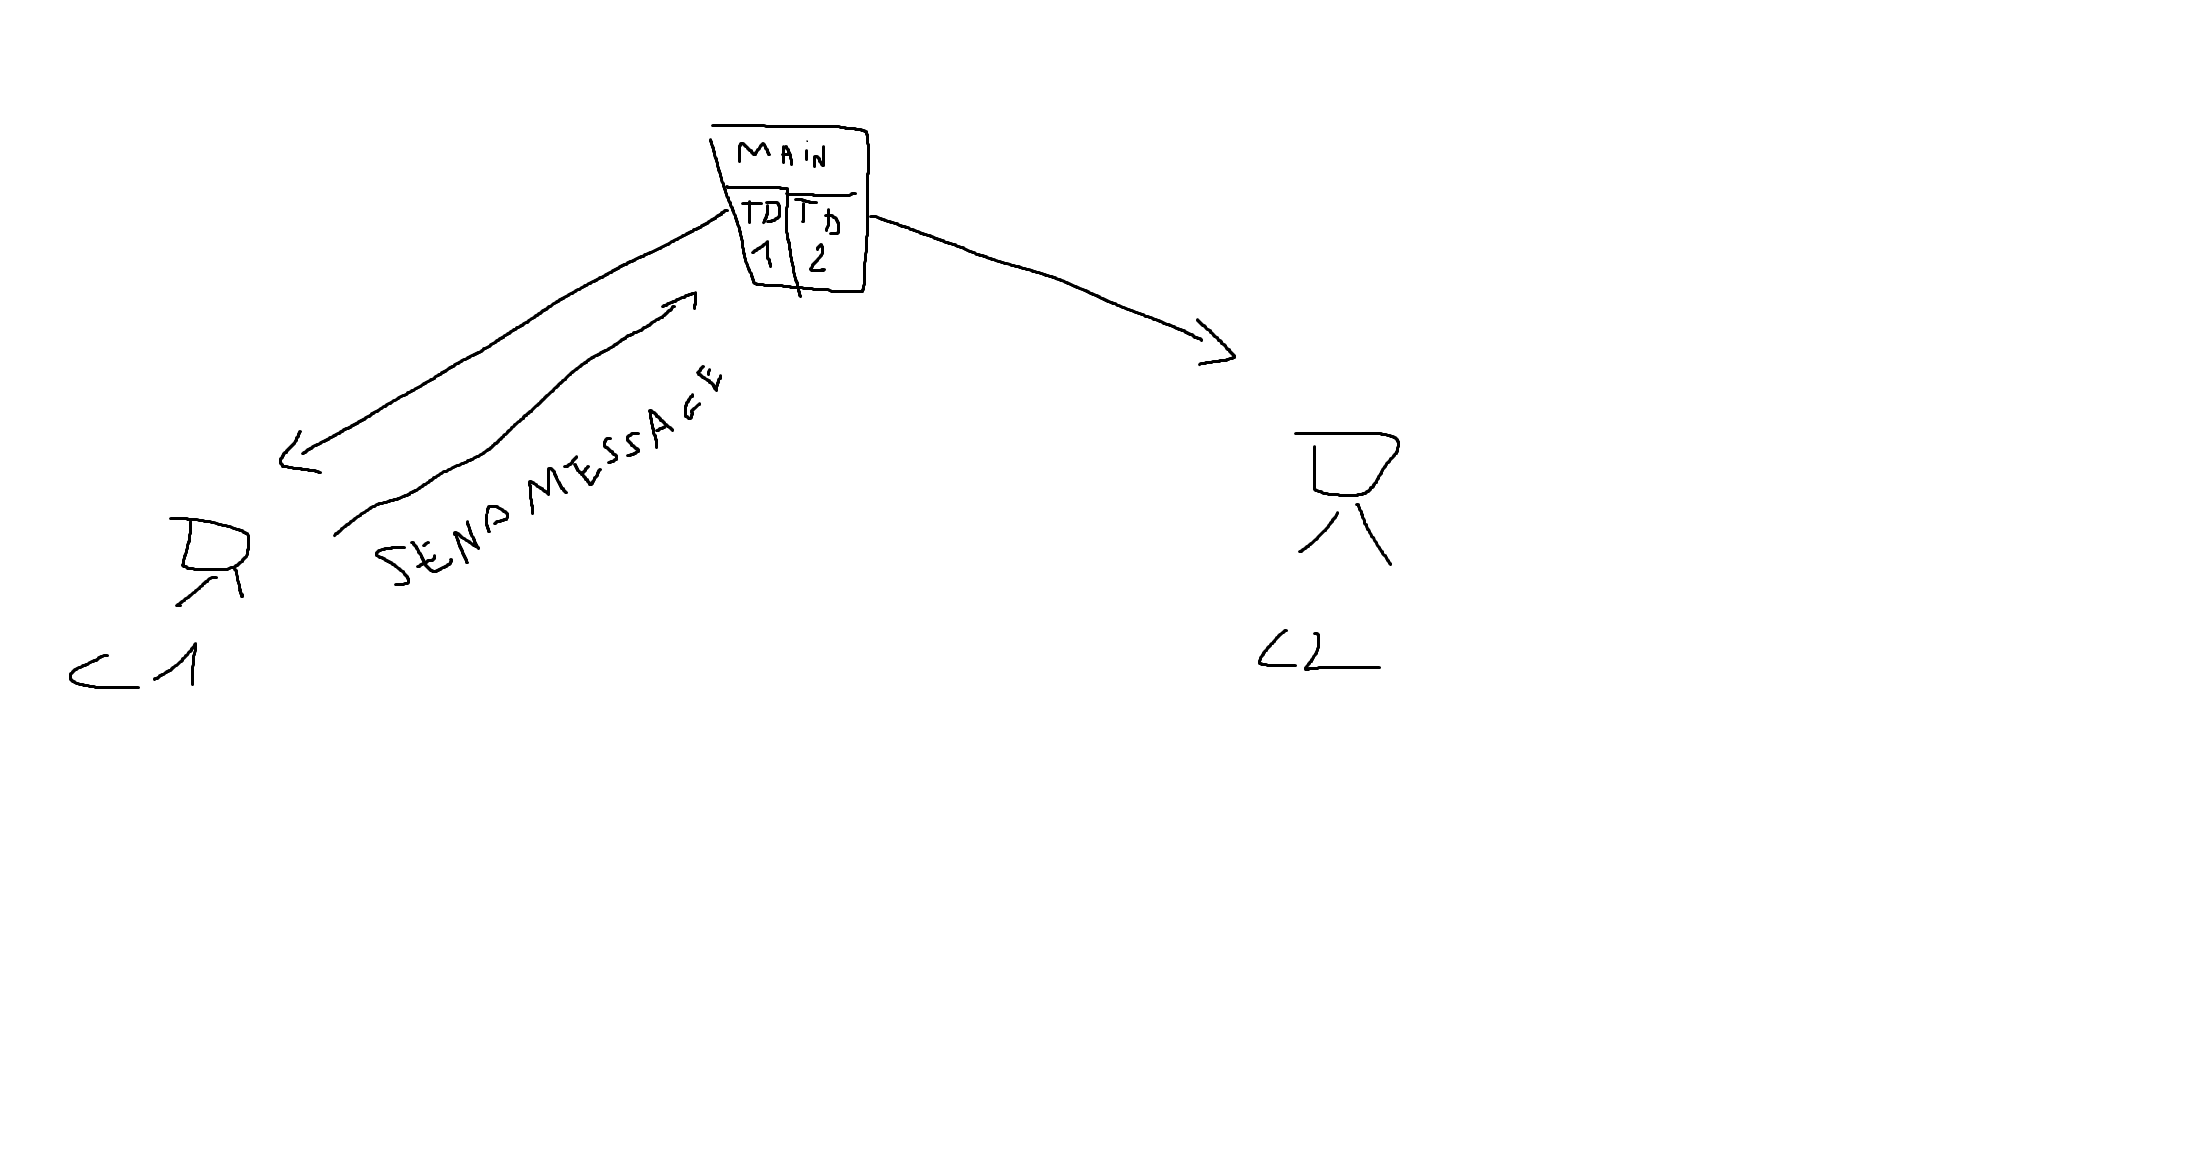 MAIN
TD TD
1 2
SEND MESSAGE
C1
C2